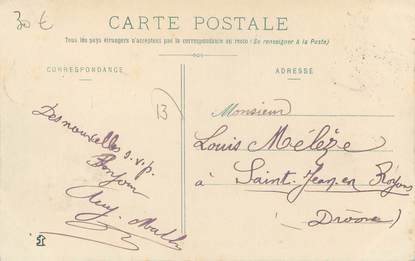 30 €
CARTE POSTALE
Tous les pays étrangers n'acceptent pas la correspondance au recto (Se renseigner à la Poste)
CORRESPONDANCE
ADRESSE
13
Des nouvelles s.v.p.
Bonjour
Monsieur
Louis Mélèze
à Saint-Jean en Royans
Drôme